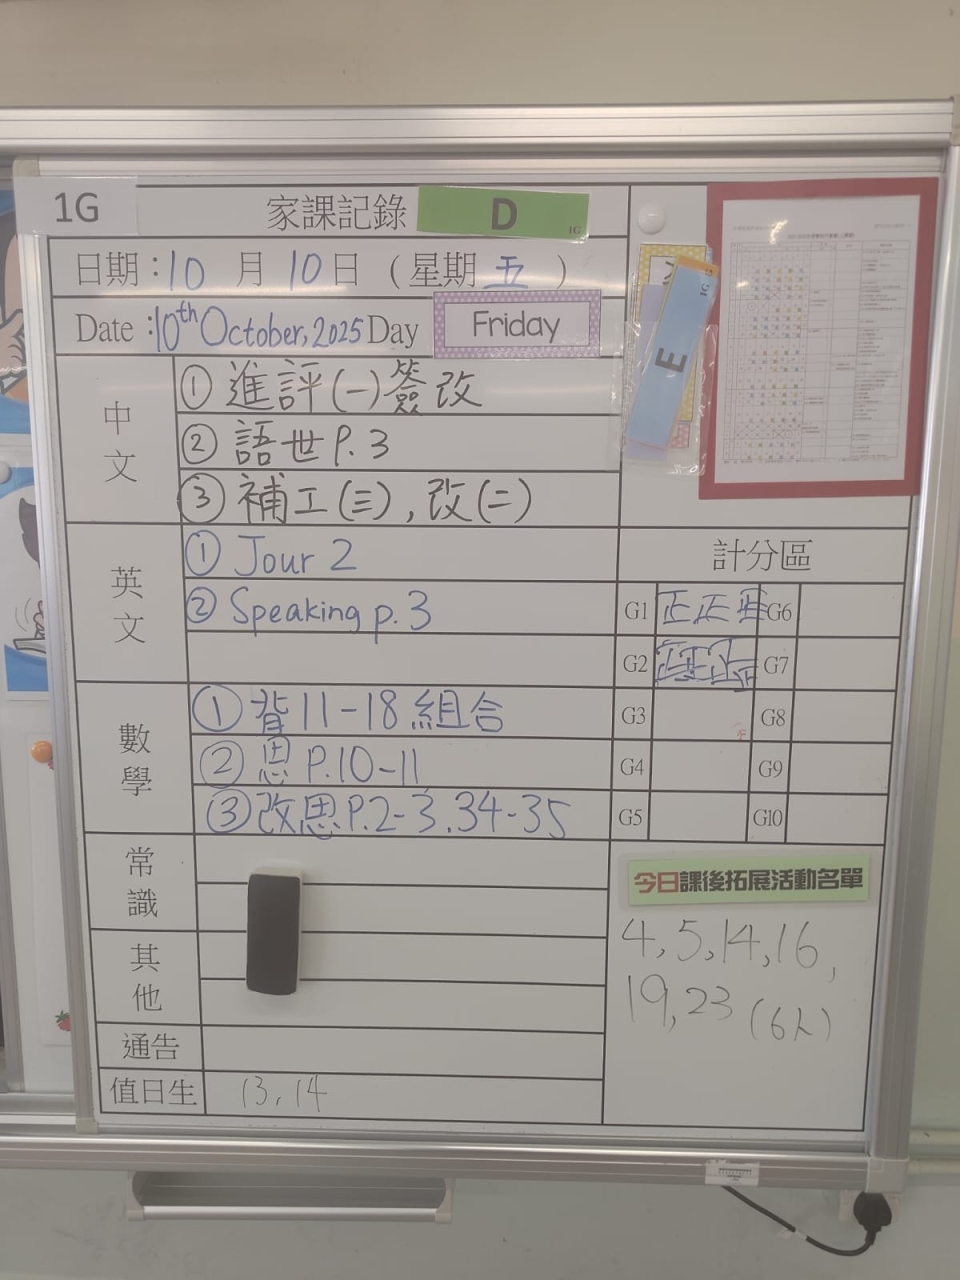 1G
家課記錄
D
1G
日期：10月10日（星期五）
Date :10th October, 2025 Day Friday
E
中文
① 進評(一)簽改
② 語世P.3
③ 補工(三), 改(二)
英文
① Jour 2
② Speaking p.3
數學
① 背11-18組合
② 思P.10-11
③ 改思P.2-3, 34-35
常識
其他
通告
值日生 13, 14
計分區
G1 正正正 G6
G2 G7
G3 G8
G4 G9
G5 G10
今日課後拓展活動名單
4, 5, 14, 16,
19, 23 (6人)